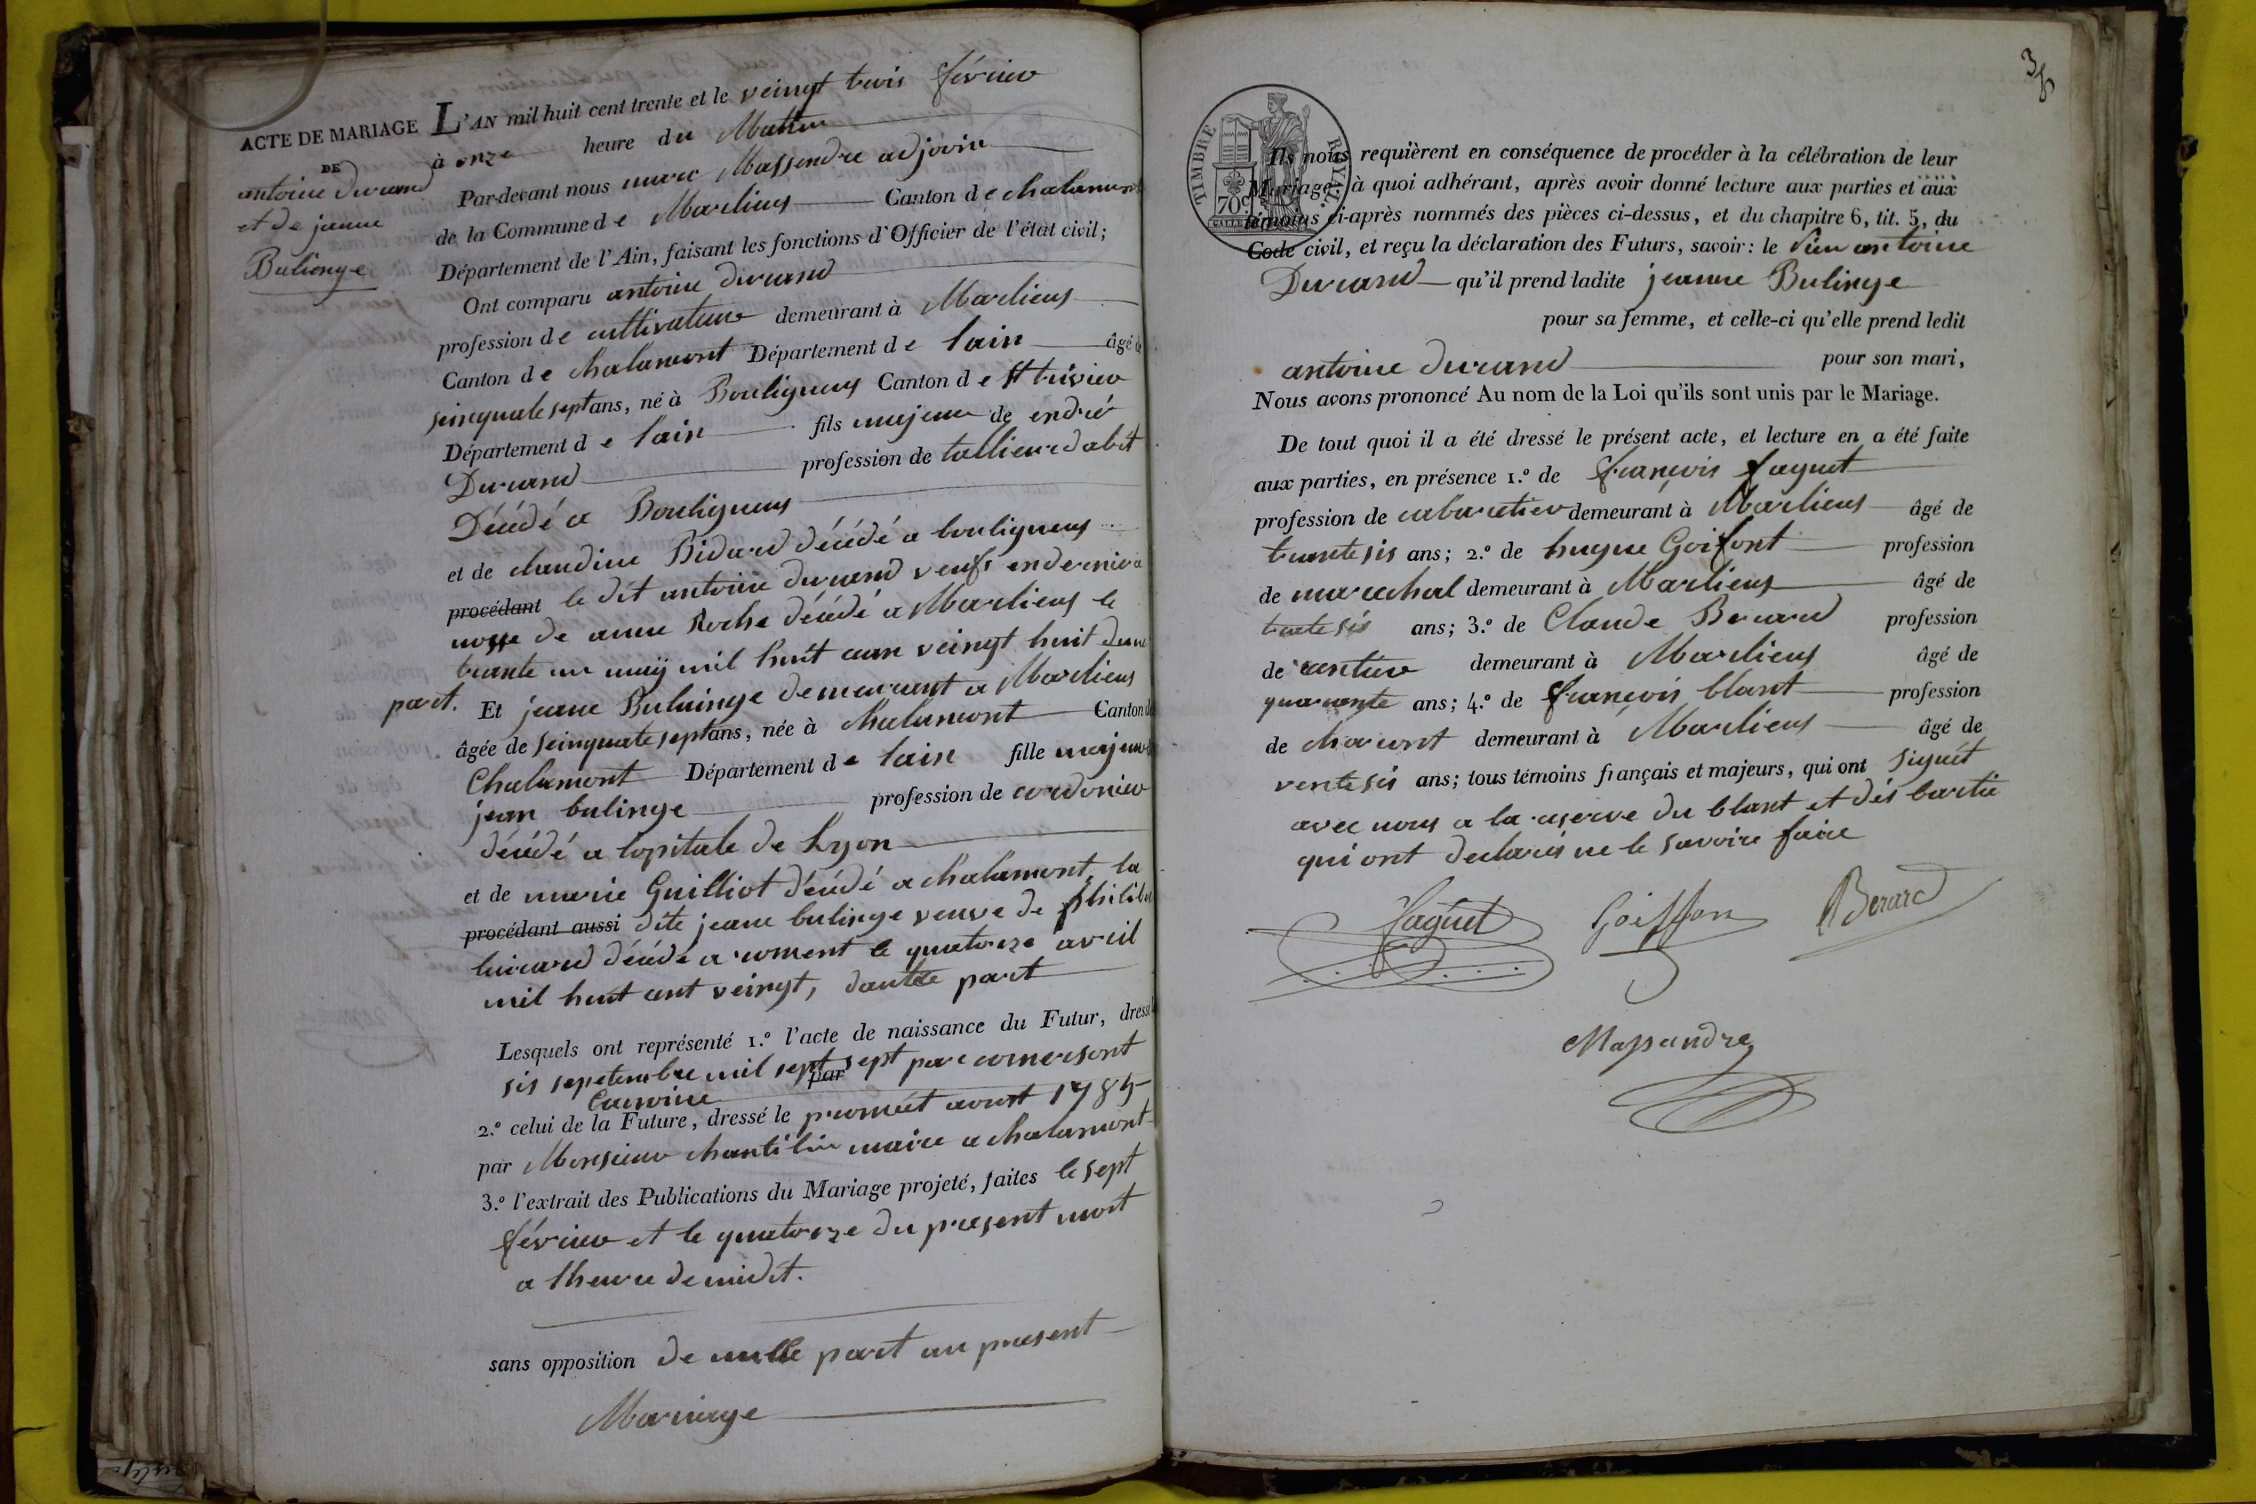 ACTE DE MARIAGE
DE
antoine durand
et de jeanne
Bulienge
L'AN mil huit cent trente et le veingt trois février
à onze heure du Mattin
Par-devant nous marc Massendre adjoin
de la Commune de Marlieus Canton de chalamont
Département de l'Ain, faisant les fonctions d'Officier de l'état civil;
Ont comparu antoine durand
profession de cultivateure demeurant à Marlieus
Canton de chalamont Département de lain âgé de
seinquate sept ans, né à Bouligneus Canton de St trivier
Département de lain fils majeur de endré
Durand profession de tallieure dabit
Décédé a Bouligneus
et de claudine Bidard décédé a bouligneus
procédant le dit antoine durand veufs en dernier
nosse de anne Roche décédé a Marlieus le
trante un maÿ mil huit cean veingt huit dune
part. Et jeane Bulainge demeurant a Marlieus
âgée de seinquate sept ans, née à Chalamont Canton de
Chalamont Département de lain fille majeure
jean bulinge profession de cordonier
décédé a lopitale de Lyon
et de marie Guilliot décédé a chalamont, la
procédant aussi dite jeane bulinge veuve de philibe
décédé a le quatorze avril
mil huit cent veingt, dautre part
Lesquels ont représenté 1.º l'acte de naissance du Futur, dressé
sis sepetembre mil sept sept par comersont
par
2.º celui de la Future, dressé le premiét avout 1785
par Monsieur chantelin maire a chalamont
3.º l'extrait des Publications du Mariage projeté, faites le sept
février et le quatorze du present mort
a lheure de midit.
sans opposition de nulle part au present
Mariage
35
TIMBRE ROYAL.
70c
Ils nous requièrent en conséquence de procéder à la célébration de leur
Mariage; à quoi adhérant, après avoir donné lecture aux parties et aux
témoins ci-après nommés des pièces ci-dessus, et du chapitre 6, tit. 5, du
Code civil, et reçu la déclaration des Futurs, savoir: le sieu antoine
Durand qu'il prend ladite jeanne Bulinge
pour sa femme, et celle-ci qu'elle prend ledit
antoine durand pour son mari,
Nous avons prononcé Au nom de la Loi qu'ils sont unis par le Mariage.
De tout quoi il a été dressé le présent acte, et lecture en a été faite
aux parties, en présence 1.º de françois faguet
profession de cabaretier demeurant à Marlieus âgé de
trante sis ans; 2.º de hugue Goifont profession
de marechal demeurant à Marlieus âgé de
trate sis ans; 3.º de Claude Berard profession
de rentier demeurant à Marlieus âgé de
quarante ans; 4.º de françois blant profession
de charont demeurant à Marlieus âgé de
vente sis ans; tous témoins français et majeurs, qui ont siguét
avec nous a la reserve du blant et dés partie
qui ont declarés ne le savoire faire
faguet Goiffon Berard
Massandre